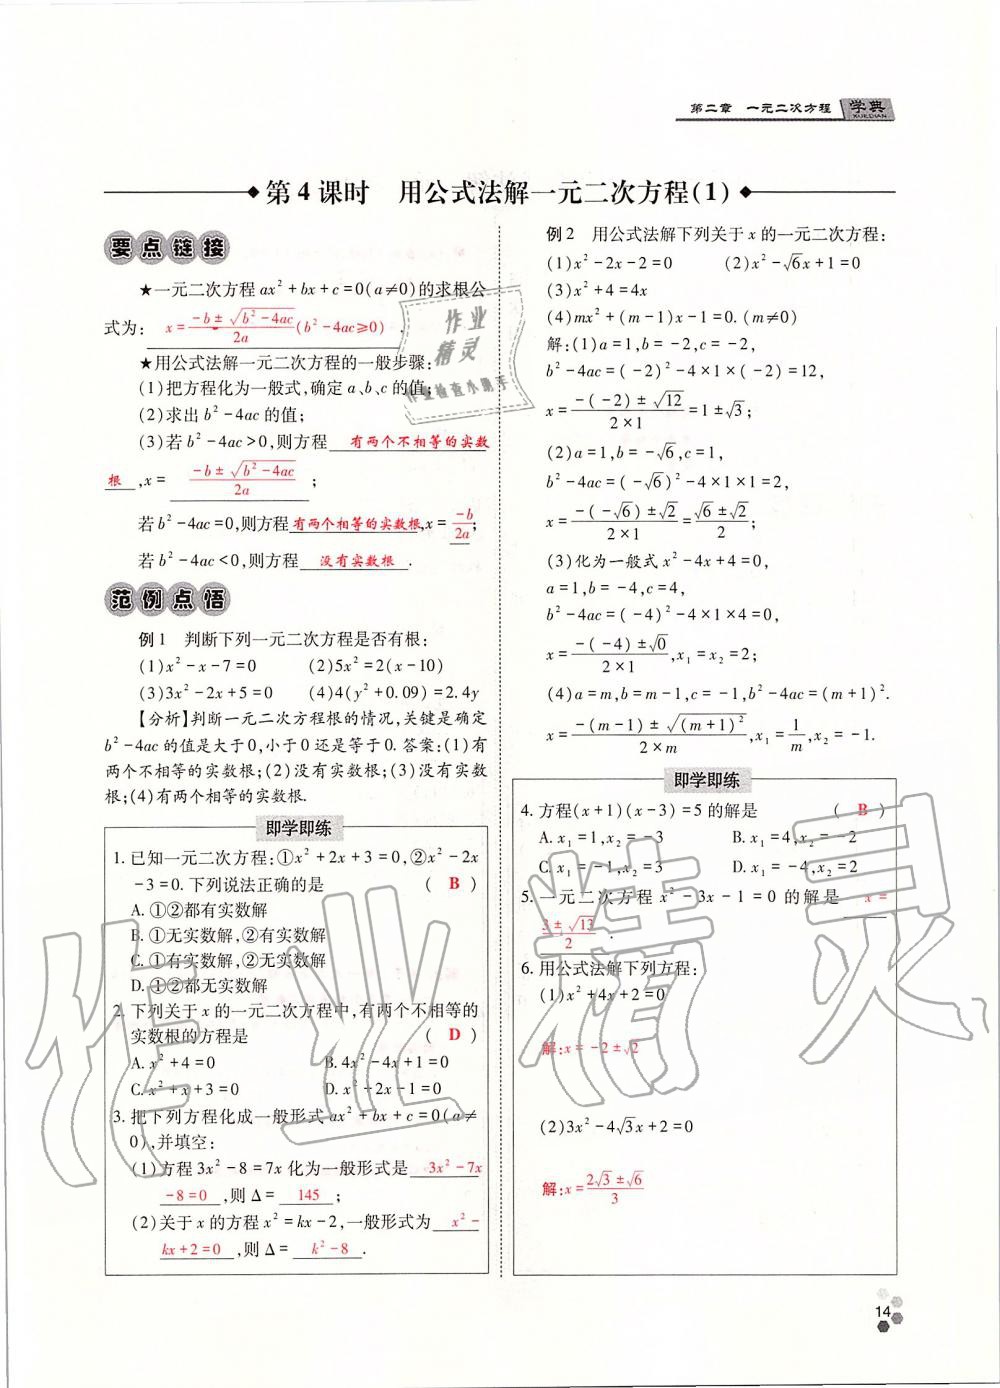 第二章 一元二次方程 学典
XUEDIAN
第4课时 用公式法解一元二次方程(1)
要点链接
★一元二次方程ax²+bx+c=0(a≠0)的求根公
式为: x=(-b±√(b²-4ac))/2a (b²-4ac≥0) .
★用公式法解一元二次方程的一般步骤:
(1)把方程化为一般式,确定a、b、c的值;
(2)求出b²-4ac的值;
(3)若b²-4ac>0,则方程 有两个不相等的实数
根 ,x= (-b±√(b²-4ac))/2a ;
若b²-4ac=0,则方程有两个相等的实数根,x= -b/2a;
若b²-4ac<0,则方程 没有实数根 .
范例点悟
例1 判断下列一元二次方程是否有根:
(1)x²-x-7=0 (2)5x²=2(x-10)
(3)3x²-2x+5=0 (4)4(y²+0.09)=2.4y
【分析】判断一元二次方程根的情况,关键是确定
b²-4ac的值是大于0,小于0还是等于0.答案:(1)有
两个不相等的实数根;(2)没有实数根;(3)没有实数
根;(4)有两个相等的实数根.
即学即练
1. 已知一元二次方程:①x²+2x+3=0,②x²-2x
-3=0.下列说法正确的是 ( B )
A. ①②都有实数解
B. ①无实数解,②有实数解
C. ①有实数解,②无实数解
D. ①②都无实数解
2. 下列关于x的一元二次方程中,有两个不相等的
实数根的方程是 ( D )
A. x²+4=0 B. 4x²-4x+1=0
C. x²+x+3=0 D. x²+2x-1=0
3. 把下列方程化成一般形式ax²+bx+c=0(a≠
0),并填空:
(1)方程3x²-8=7x化为一般形式是 3x²-7x
-8=0 ,则Δ= 145 ;
(2)关于x的方程x²=kx-2,一般形式为 x²-
kx+2=0 ,则Δ= k²-8 .
例2 用公式法解下列关于x的一元二次方程:
(1)x²-2x-2=0 (2)x²-√6x+1=0
(3)x²+4=4x
(4)mx²+(m-1)x-1=0.(m≠0)
解:(1)a=1,b=-2,c=-2,
b²-4ac=(-2)²-4×1×(-2)=12,
x=(-(-2)±√12)/(2×1)=1±√3;
(2)a=1,b=-√6,c=1,
b²-4ac=(-√6)²-4×1×1=2,
x=(-(-√6)±√2)/(2×1)=(√6±√2)/2;
(3)化为一般式x²-4x+4=0,
a=1,b=-4,c=4,
b²-4ac=(-4)²-4×1×4=0,
x=(-(-4)±√0)/(2×1),x₁=x₂=2;
(4)a=m,b=m-1,c=-1,b²-4ac=(m+1)².
x=(-(m-1)±√(m+1)²)/(2×m),x₁=1/m,x₂=-1.
即学即练
4. 方程(x+1)(x-3)=5的解是 ( B )
A. x₁=1,x₂=-3 B. x₁=4,x₂=-2
C. x₁=-1,x₂=3 D. x₁=-4,x₂=2
5. 一元二次方程x²-3x-1=0的解是 x=
(3±√13)/2 .
6. 用公式法解下列方程:
(1)x²+4x+2=0
解:x=-2±√2
(2)3x²-4√3x+2=0
解:x=(2√3±√6)/3
14
作业
精灵
作业检查小助手
作业精灵